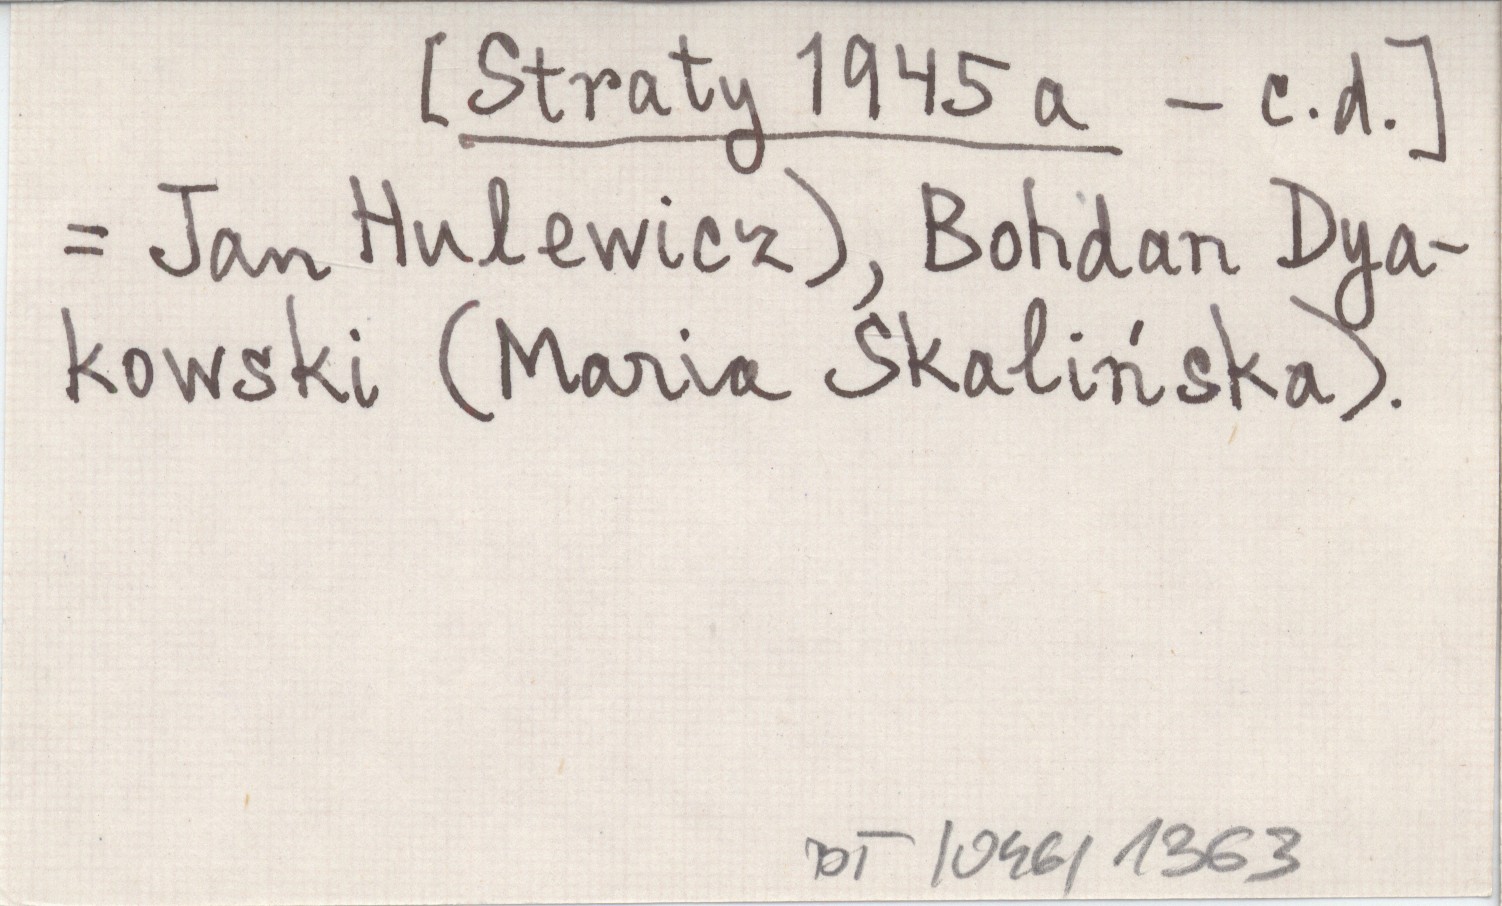 [Straty 1945 a – c.d.]
= Jan Hulewicz), Bohdan Dya-
kowski (Maria Skalińska).
1363